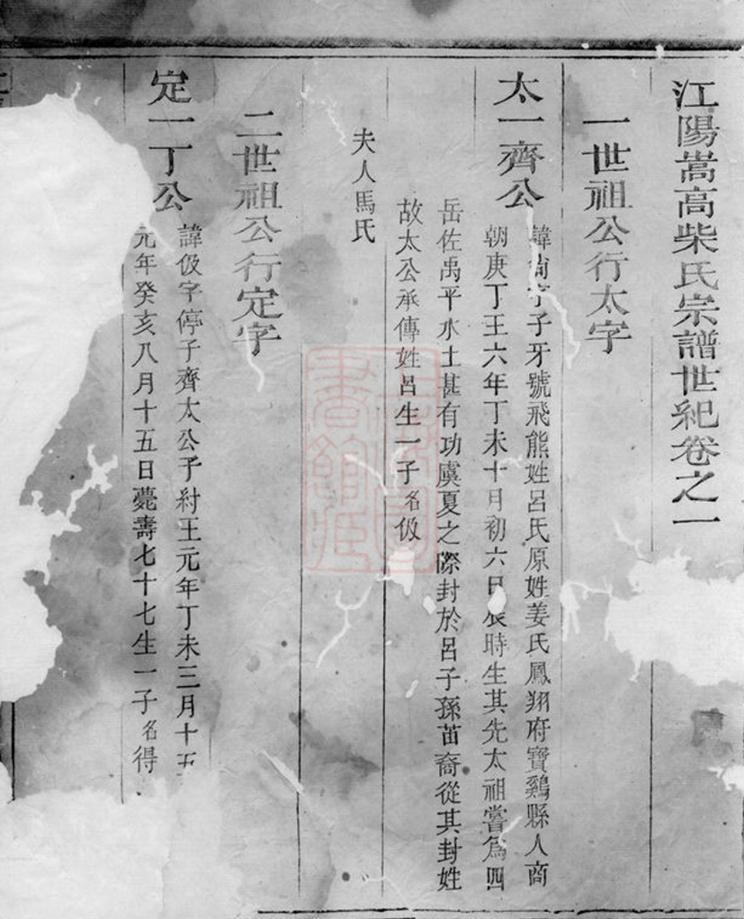 江陽嵩高柴氏宗譜世紀卷之一
一世祖公行太字
太一齊公
諱尙字子牙號飛熊姓呂氏原姓姜氏鳳翔府寶鷄縣人商
朝庚丁王六年丁未十月初六日辰時生其先太祖嘗爲四
岳佐禹平水土甚有功虞夏之際封於呂子孫苗裔從其封姓
故太公承傳姓呂生一子名伋
夫人馬氏
二世祖公行定字
定一丁公
諱伋字停子齊太公子紂王元年丁未三月十五
元年癸亥八月十五日薨壽七十七生一子名得